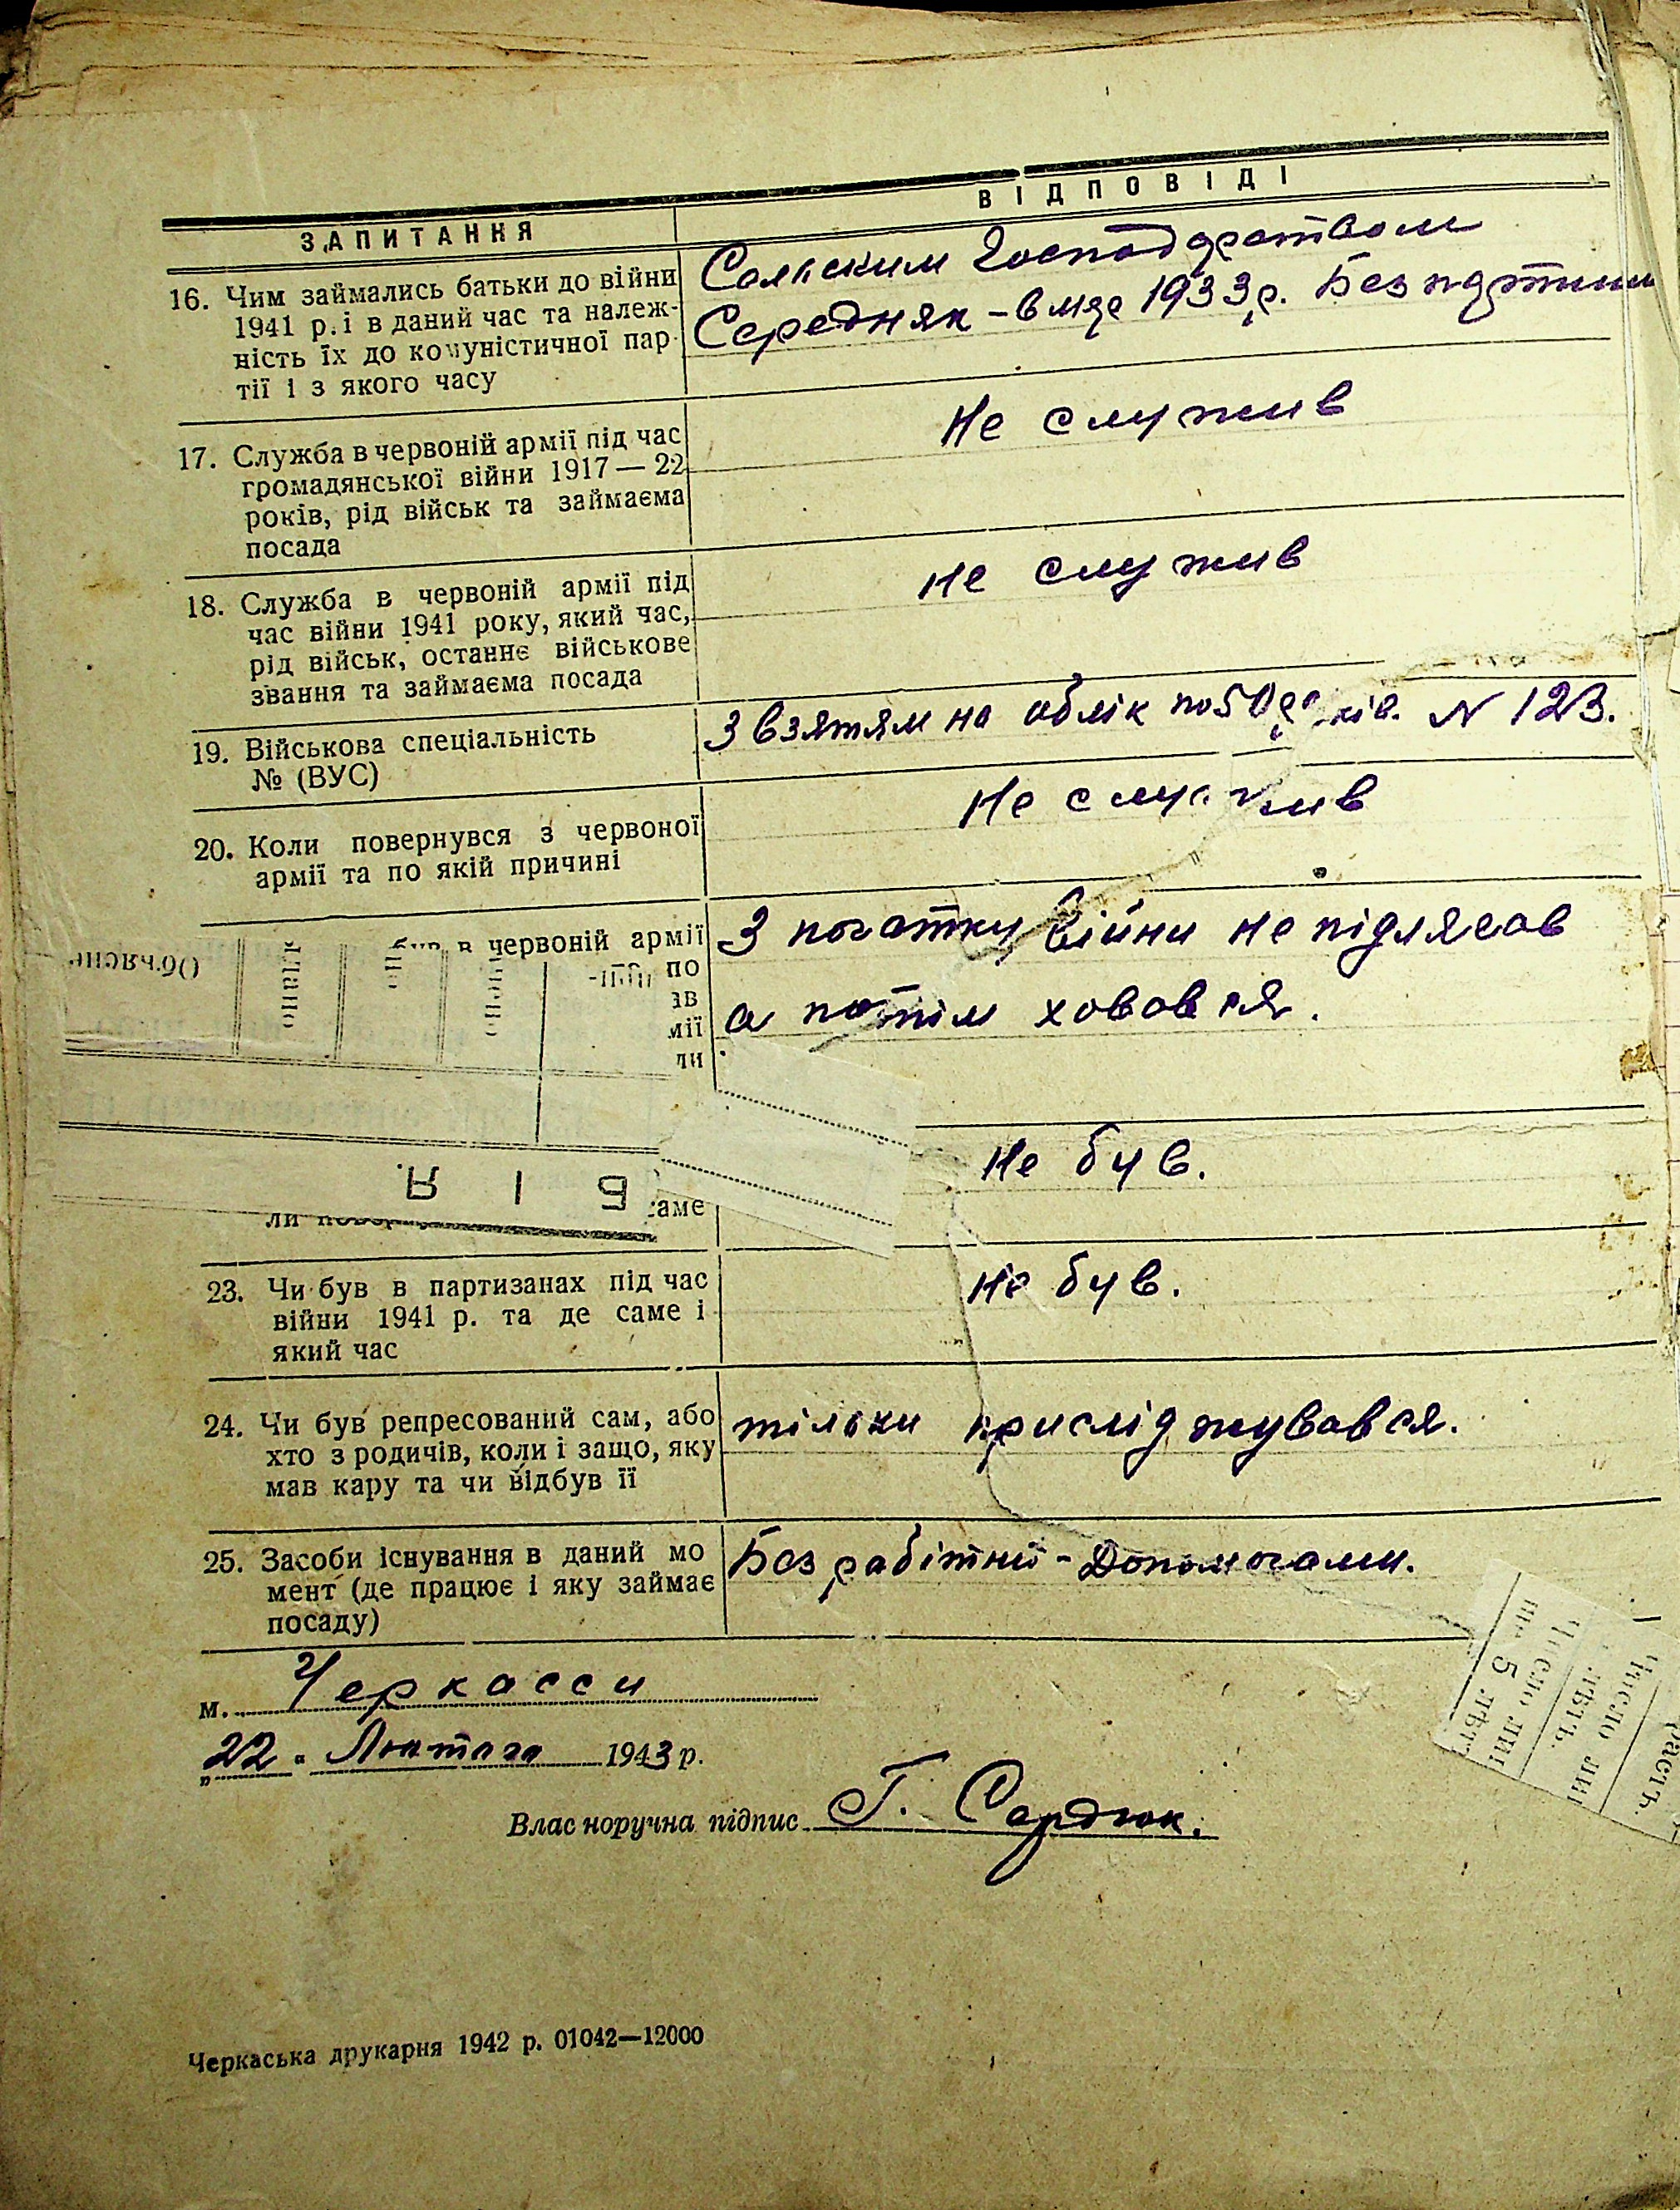 ЗАПИТАННЯ
ВІДПОВІДІ
16. Чим займались батьки до війни
1941 р. і в даний час та належ-
ність їх до комуністичної пар-
тії і з якого часу
Сольским Господарством
Середняк - вмер 1933 р. Безпартийн
17. Служба в червоній армії під час
громадянської війни 1917 — 22
років, рід військ та займаєма
посада
Не служив
18. Служба в червоній армії під
час війни 1941 року, який час,
рід військ, останнє військове
звання та займаєма посада
не служив
19. Військова спеціальність
№ (ВУС)
З взятям на облік по 50 N 123.
20. Коли повернувся з червоної
армії та по якій причині
Не служив
в червоній армії
по
ав
мії
ли
З початку війни не підлягав
а потім ховався.
Объясне
В І Д
саме
Не був.
23. Чи був в партизанах під час
війни 1941 р. та де саме і
який час
Не був.
24. Чи був репресований сам, або
хто з родичів, коли і защо, яку
мав кару та чи відбув її
тільки присліджувався.
25. Засоби існування в даний мо
мент (де працює і яку займає
посаду)
Без рабітний - Допомогами.
Число ли
5 лѣт
лѣтъ.
Число ли
растъ.
м. Черкасси
„22" Лютого 1943 р.
Власноручна підпис Г. Сердюк.
Черкаська друкарня 1942 р. 01042—12000